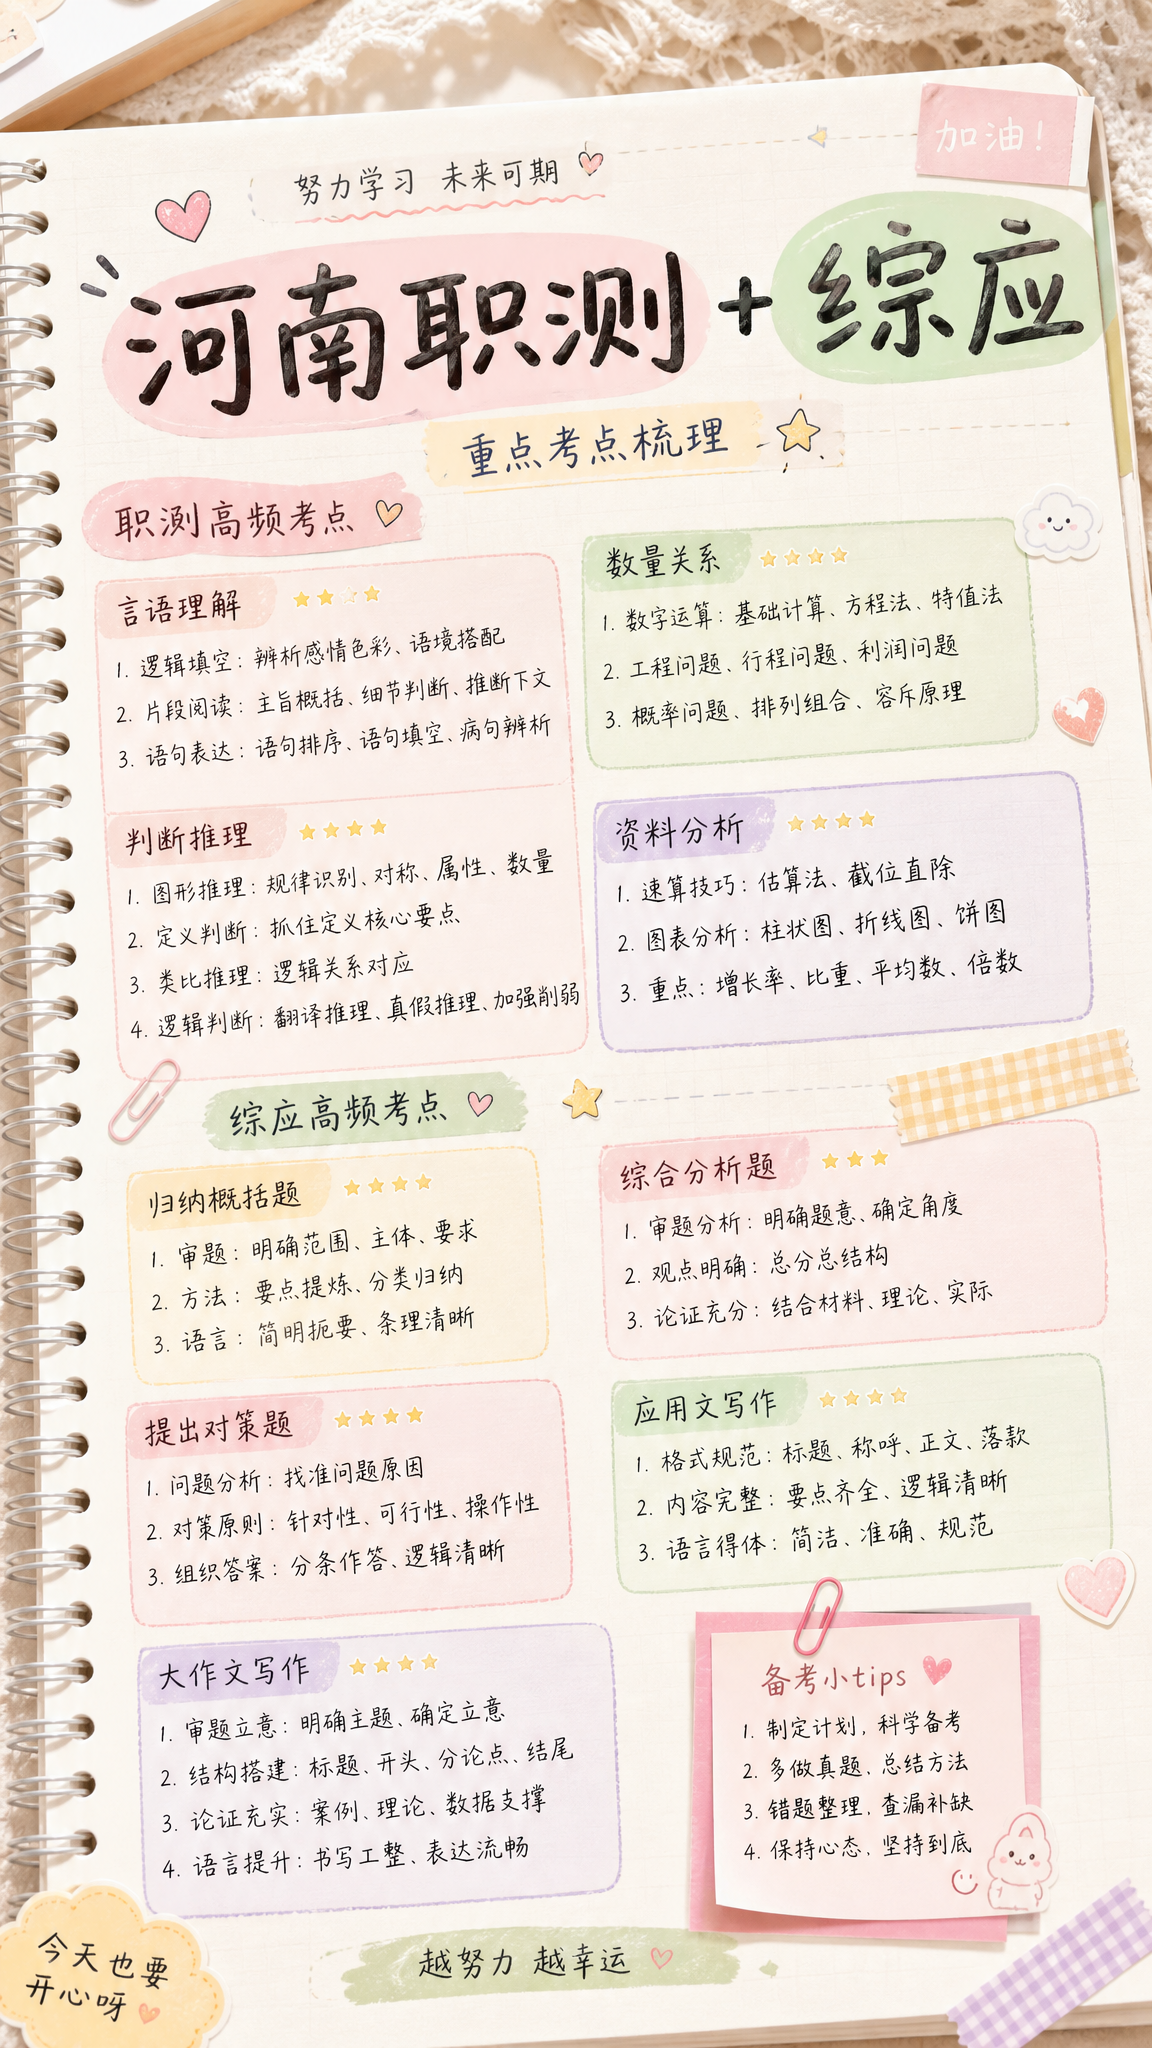 加油！
努力学习 未来可期
河南职测+综应
重点考点梳理
职测高频考点
言语理解
1. 逻辑填空：辨析感情色彩、语境搭配
2. 片段阅读：主旨概括、细节判断、推断下文
3. 语句表达：语句排序、语句填空、病句辨析
判断推理
1. 图形推理：规律识别、对称、属性、数量
2. 定义判断：抓住定义核心要点
3. 类比推理：逻辑关系对应
4. 逻辑判断：翻译推理、真假推理、加强削弱
数量关系
1. 数字运算：基础计算、方程法、特值法
2. 工程问题、行程问题、利润问题
3. 概率问题、排列组合、容斥原理
资料分析
1. 速算技巧：估算法、截位直除
2. 图表分析：柱状图、折线图、饼图
3. 重点：增长率、比重、平均数、倍数
综应高频考点
归纳概括题
1. 审题：明确范围、主体、要求
2. 方法：要点提炼、分类归纳
3. 语言：简明扼要、条理清晰
综合分析题
1. 审题分析：明确题意、确定角度
2. 观点明确：总分总结构
3. 论证充分：结合材料、理论、实际
提出对策题
1. 问题分析：找准问题原因
2. 对策原则：针对性、可行性、操作性
3. 组织答案：分条作答、逻辑清晰
应用文写作
1. 格式规范：标题、称呼、正文、落款
2. 内容完整：要点齐全、逻辑清晰
3. 语言得体：简洁、准确、规范
大作文写作
1. 审题立意：明确主题、确定立意
2. 结构搭建：标题、开头、分论点、结尾
3. 论证充实：案例、理论、数据支撑
4. 语言提升：书写工整、表达流畅
备考小tips
1. 制定计划，科学备考
2. 多做真题、总结方法
3. 错题整理，查漏补缺
4. 保持心态，坚持到底
今天也要
开心呀
越努力 越幸运